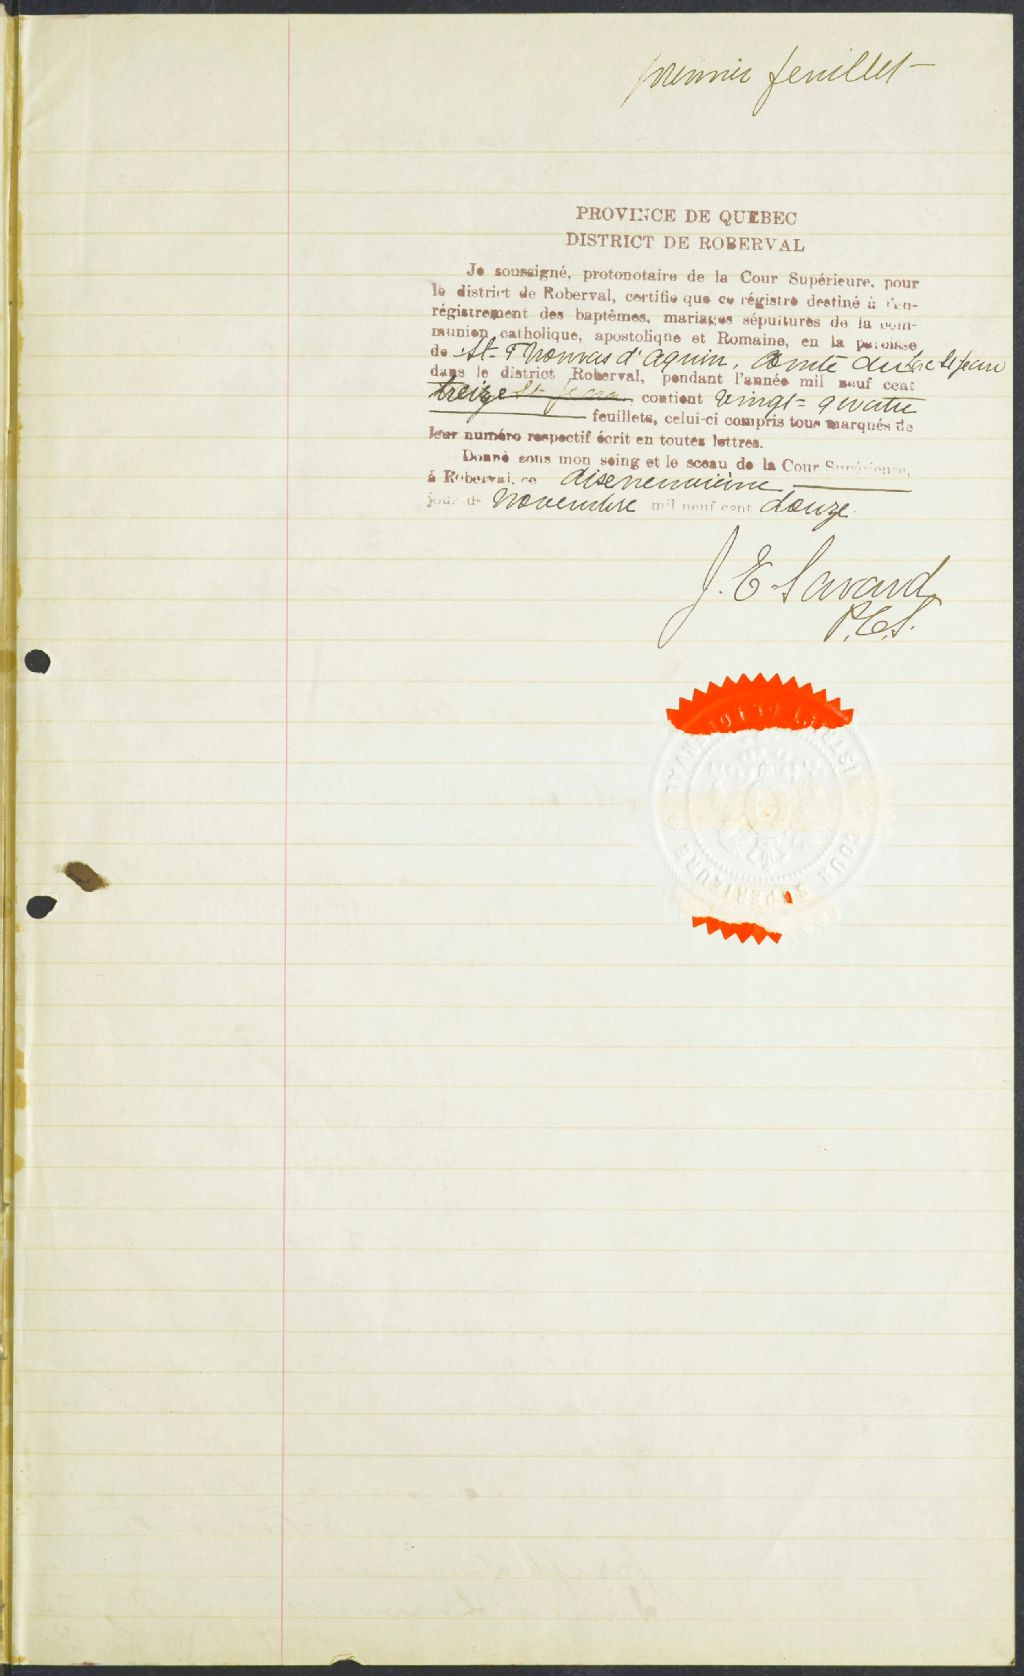 premier feuillet
PROVINCE DE QUEBEC
DISTRICT DE ROBERVAL
Je soussigné, protonotaire de la Cour Supérieure, pour
le district de Roberval, certifie que ce régistré destiné à l'en-
régistrement des baptêmes, mariages sépultures de la com-
munion catholique, apostolique et Romaine, en la paroisse
de St-Thomas d'Aquin, Comté du Lac St Jean
dans le district Roberval, pendant l'année mil neuf cent
treize St Jean contient vingt=quatre
feuillets, celui-ci compris tous marqués de
leur numéro respectif écrit en toutes lettres.
Donné sous mon seing et le sceau de la Cour Supérieure,
á Roberval, ce diseneuvième
jour de Novembre mil neuf cent douze.
J. E. Savard
P.C.S.
COUR SUPERIEURE